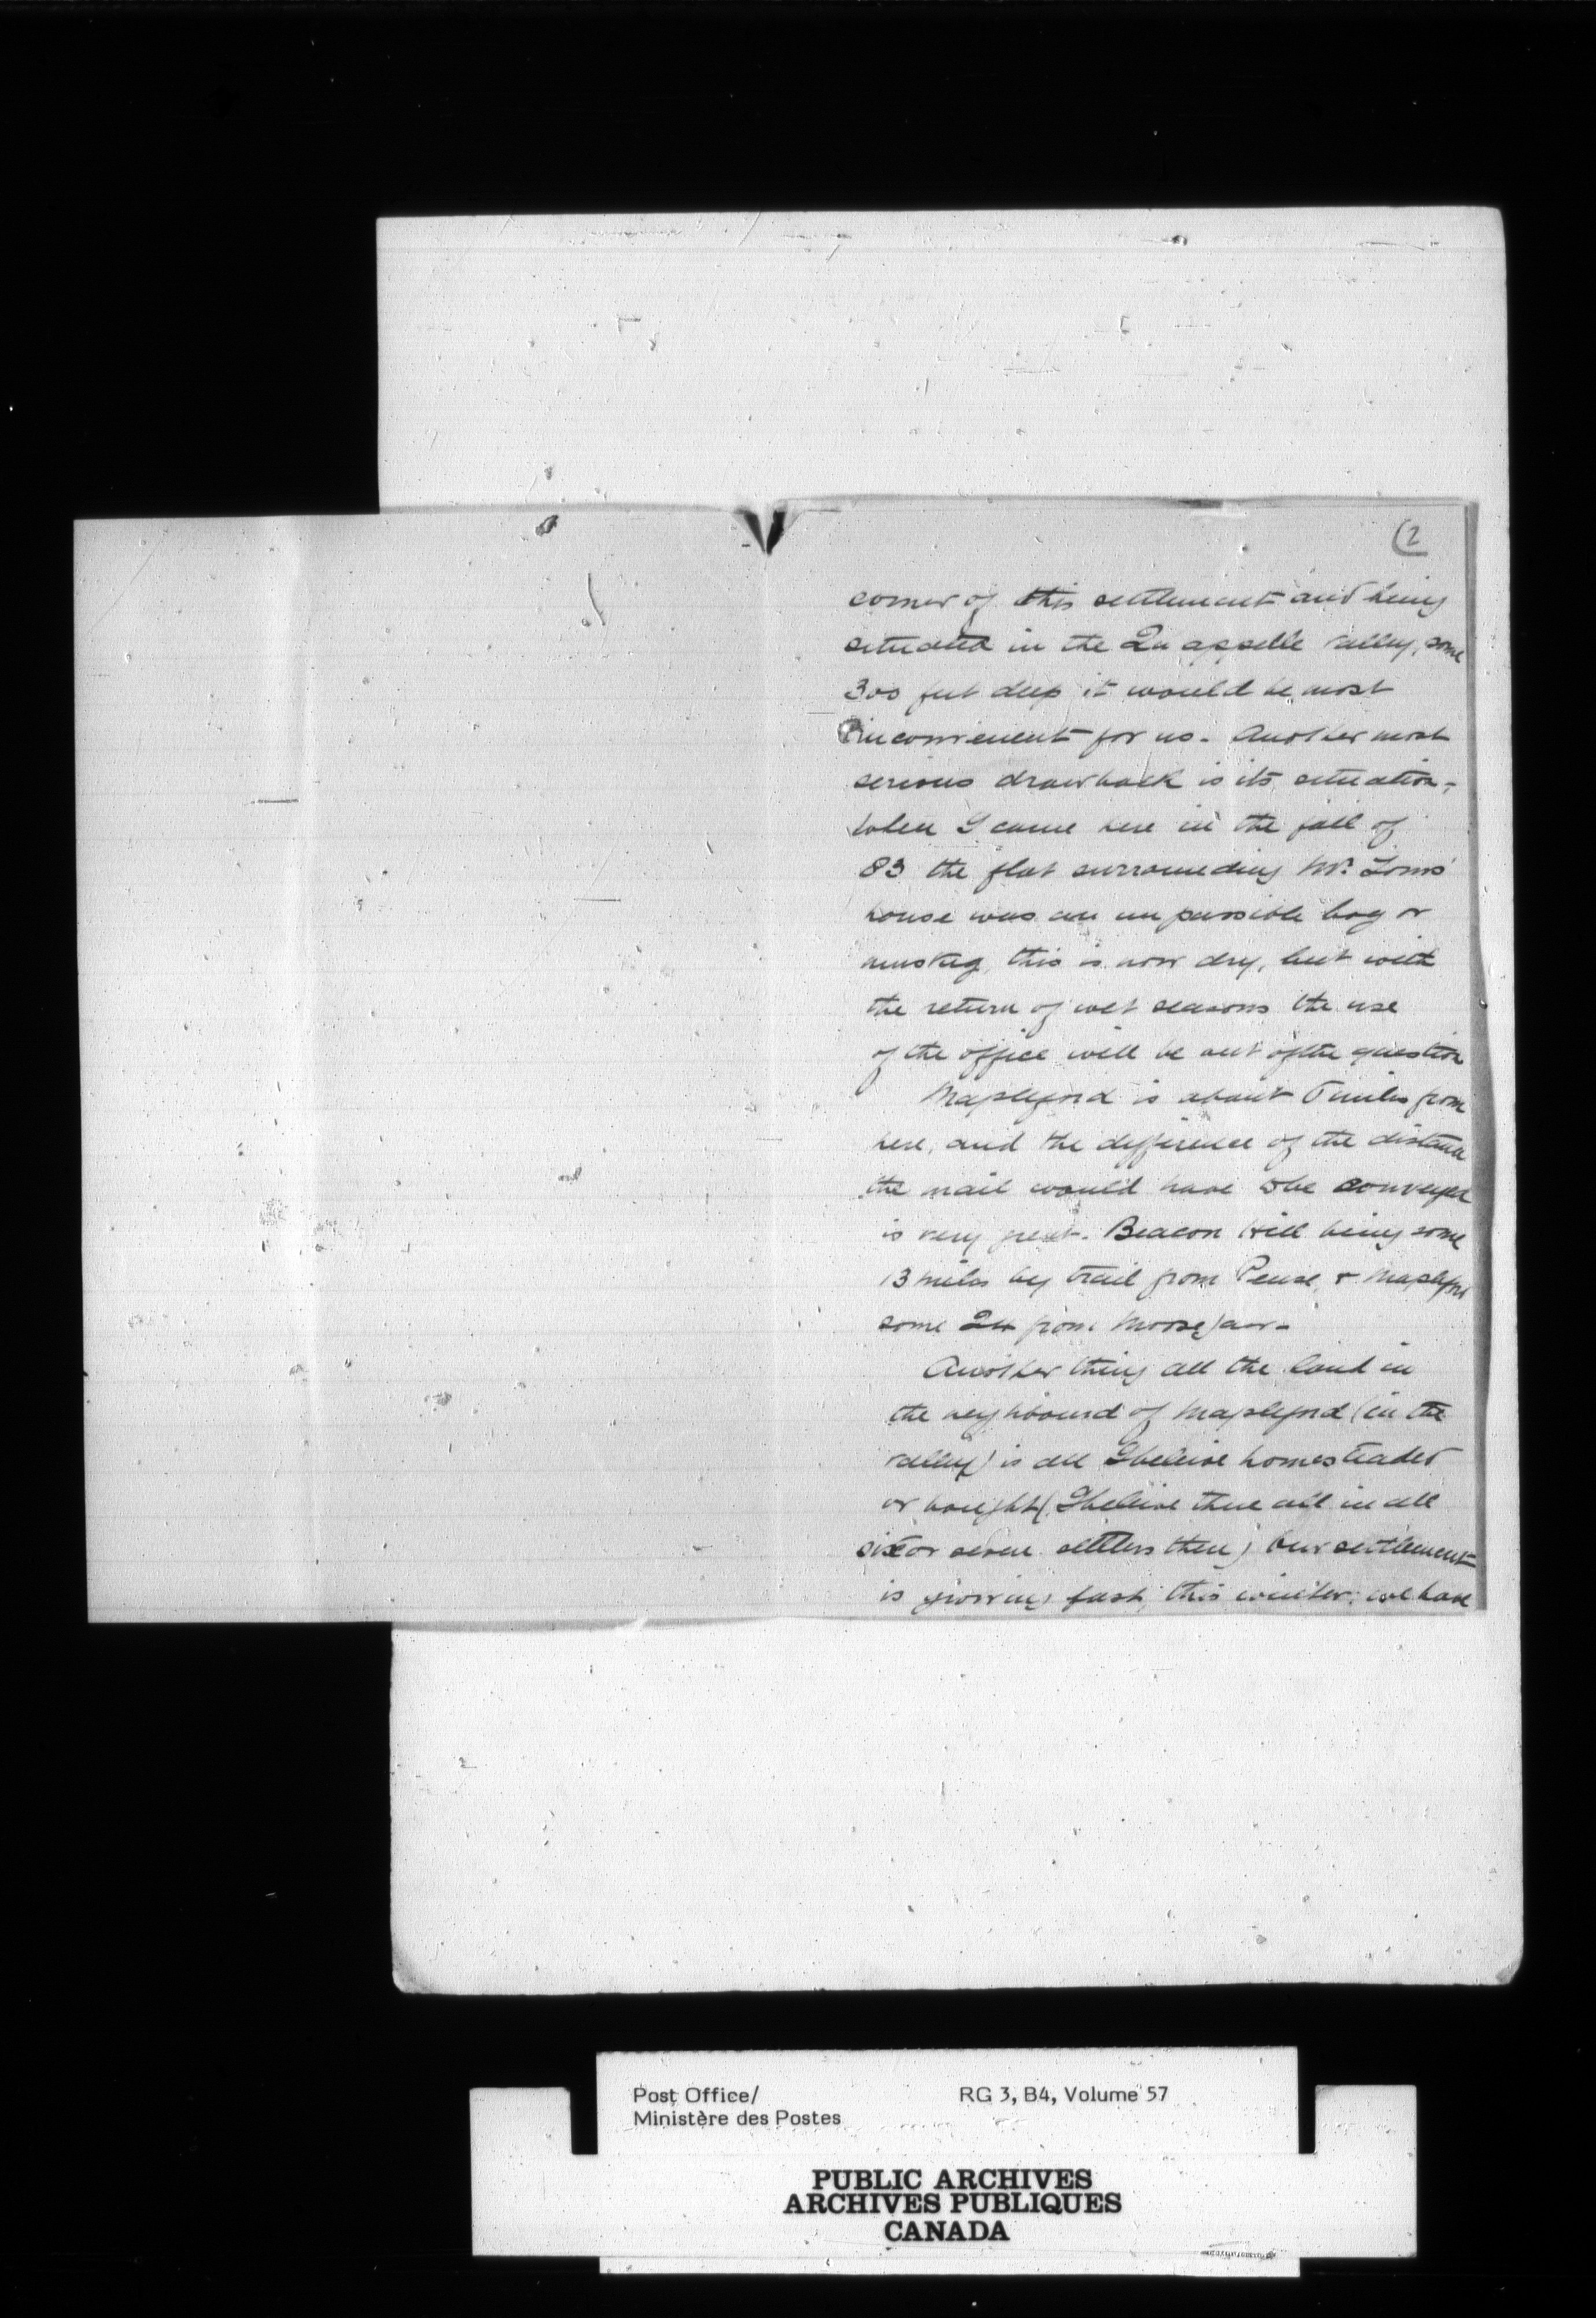 (2
corner of this settlement and being
situated in the Qu appelle valley, some
300 feet deep it would be most
inconvenient for us - Another most
serious drawback is its situation -
when I came here in the fall of
83 the flat surrounding Mr.
house was an unpassible bog or
muskeg, this is now dry, but with
the return of wet seasons the use
of the office will be out of the question
Mapleford is about miles from
here, and the difference of the distance
the mail would have to be conveyed
is very great. Beacon Hill being some
13 miles by trail from Pense, & Mapleford
some 24 from Moosejaw -
Another thing all the land in
the neighbourd of Mapleford (in the
valley) is all I beleive homesteaded
or bought (I beleive there are in all
six or seven settlers there) our settlement
is growing fast, this winter we have
Post Office/
Ministère des Postes
RG 3, B4, Volume 57
PUBLIC ARCHIVES
ARCHIVES PUBLIQUES
CANADA